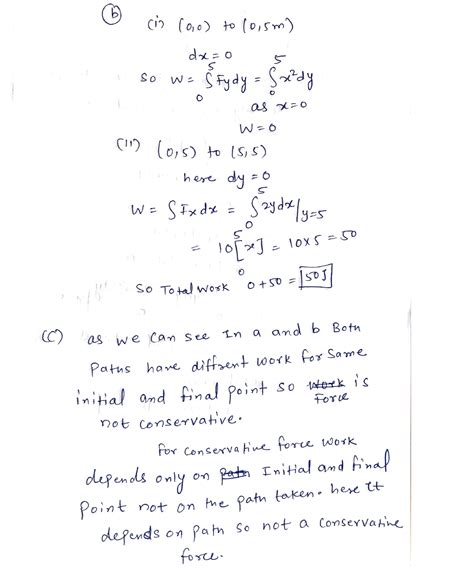 (b) (i) (0,0) to (0,5m)
dx = 0
so W = ∫₀⁵ Fydy = ∫₀⁵ x²dy
as x=0
W=0
(ii) (0,5) to (5,5)
here dy = 0
W = ∫Fxdx = ∫₀⁵ 2ydx|y=5
= 10[x]₀⁵ = 10x5 = 50
So Total work 0+50 = 50J
(C) as we can see In a and b Both
Paths have diffrent work for same
initial and final point so work is
Force
not conservative.
For conservative force work
depends only on path Initial and final
Point not on the path taken. here It
depends on path so not a conservative
force.